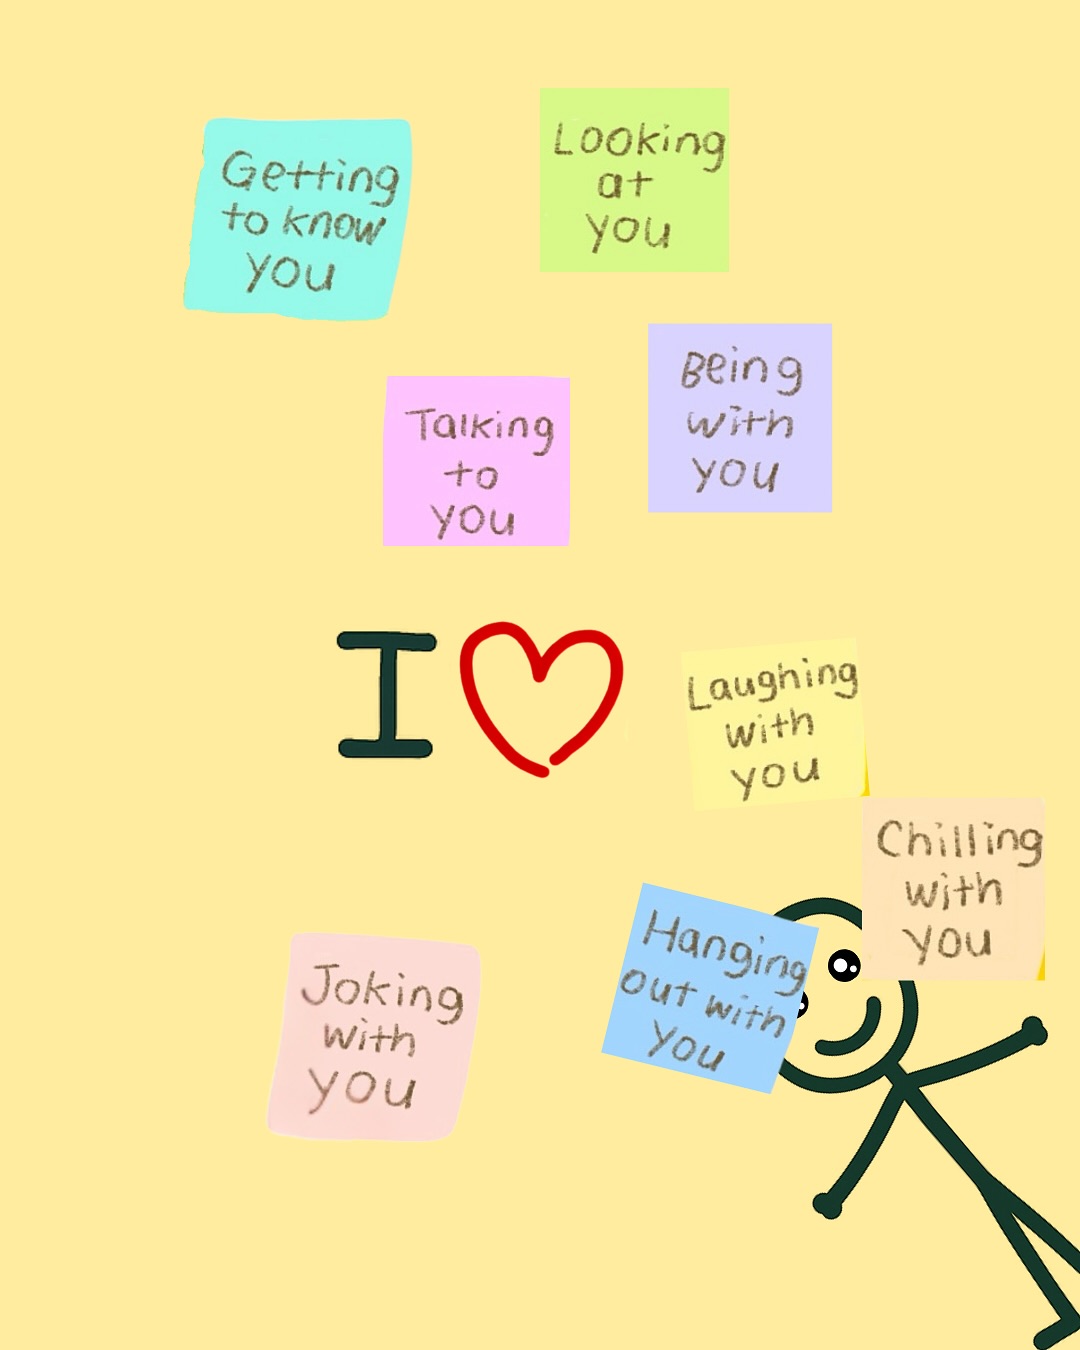 Getting
to know
you
Looking
at
you
Talking
to
you
Being
with
you
I
Laughing
with
you
Chilling
with
you
Hanging
out with
you
Joking
with
you